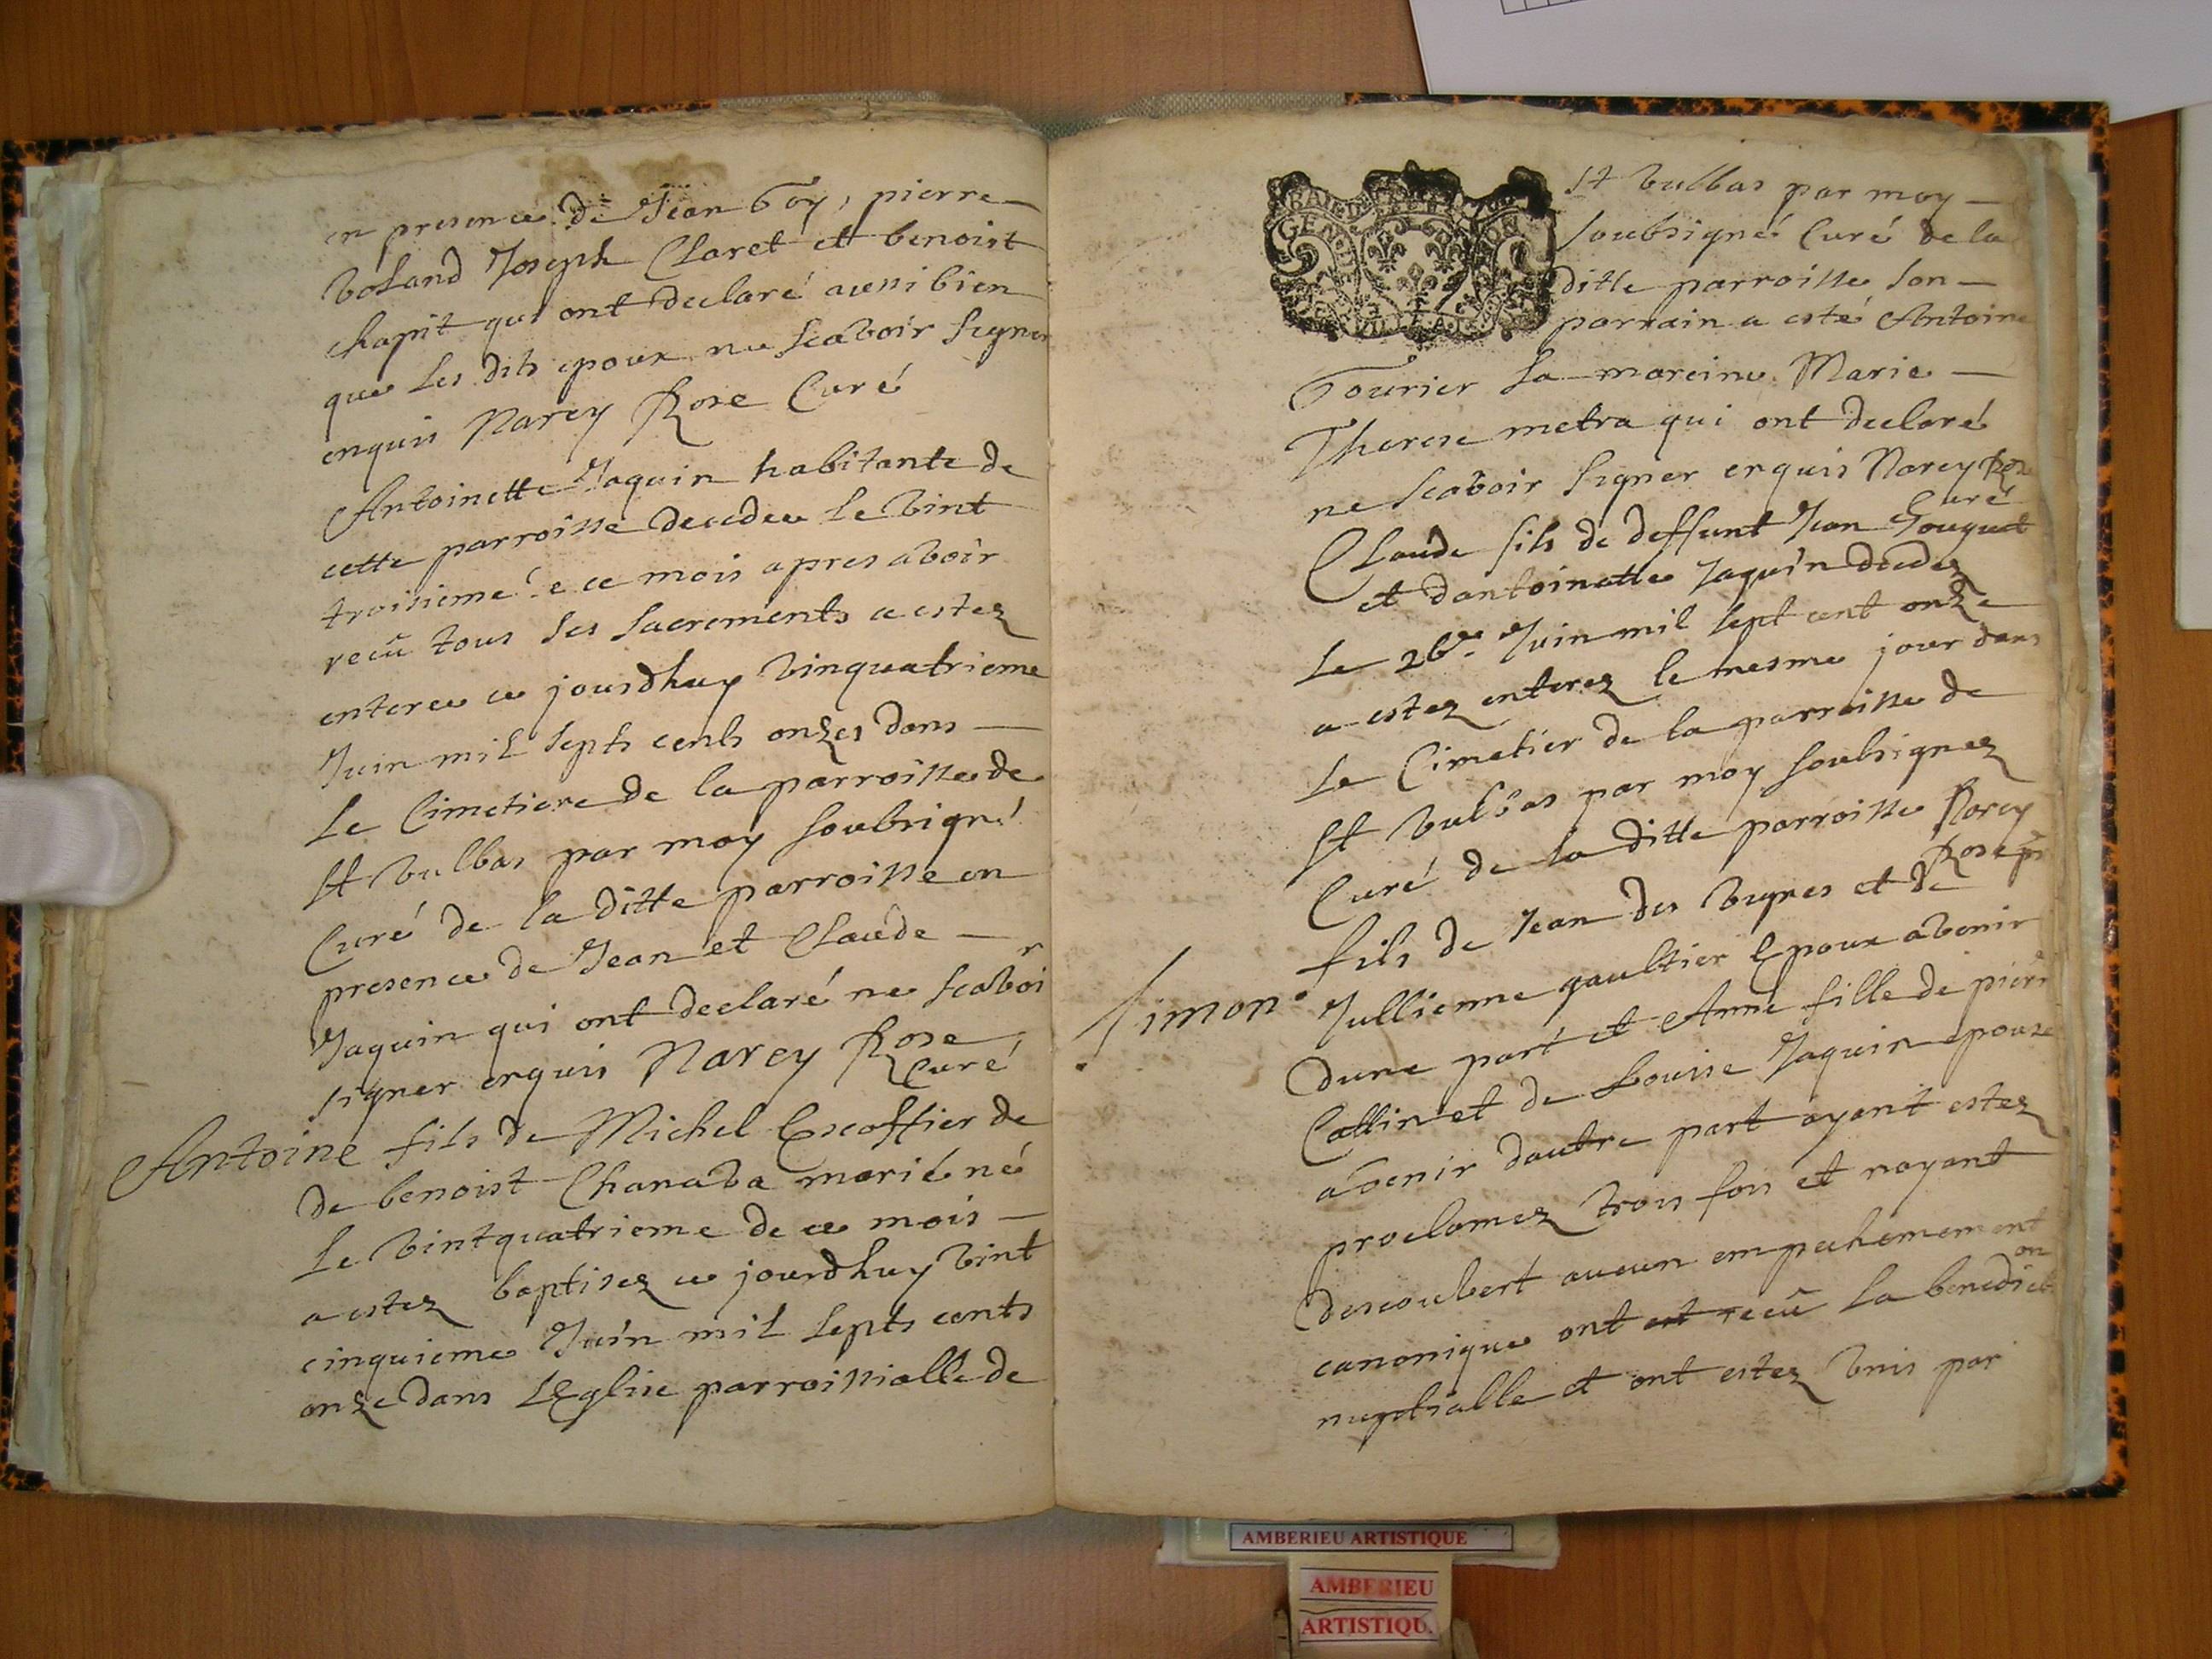 en presence de Jean Goy, pierre
Voland Joseph Claret et benoist
chapit qui ont declaré aussi bien
que les dits epoux ne scavoir signer
enquis Narcy Rose Curé
Antoinette Jaquin habitante de
cette parroisse decedee le vint
troisieme de ce mois apres avoir
recû tous ses sacrements a estez
enteree ce jourdhuy vinquatrieme
Juin mil septs cents onzes dans
le Cimetiere de la parroisse de
St vulbas par moy soubsigné
Curé de la ditte parroisse en
presence de Jean et Claude
Jaquin qui ont declaré ne scavoir
signer enquis Narcy Rose
Curé
Antoine fils de Michel Escoffier de
de benoist Chanava marié né
le vintquatrieme de ce mois
a estez baptisez ce jourdhuy vint
cinquieme Juin mil septs cents
onze dans LEglise parroissialle de
GEN
St vulbas par moy
soubsigné Curé de la
ditte parroisse son
parrain a esté Antoine
Tourier sa mareine Marie
Therese metra qui ont declaré
ne scavoir signer enquis Narcy Rose
Curé
Claude fils de deffunt Jean Gouquet
et dantoinette Jaquin decedez
le 26e Juin mil sept cent onze
a estez enterez le mesme jour dans
le Cimetier de la parroisse de
St vulbas par moy soubsignez
Curé de la ditte parroisse Narcy
Rose
Simon fils de Jean des vugnes et de
Jullienne gaultier Epoux avenir
dune part et Anne fille de pierre
Cattin et de Louise Jaquin epouse
avenir dautre part ayant estez
proclamez trois fois et nayant
descouvert aucun empechemement
canonique ont est recû la benediction
nuptialle et ont estez vnis par
AMBERIEU ARTISTIQUE
AMBERIEU
ARTISTIQU